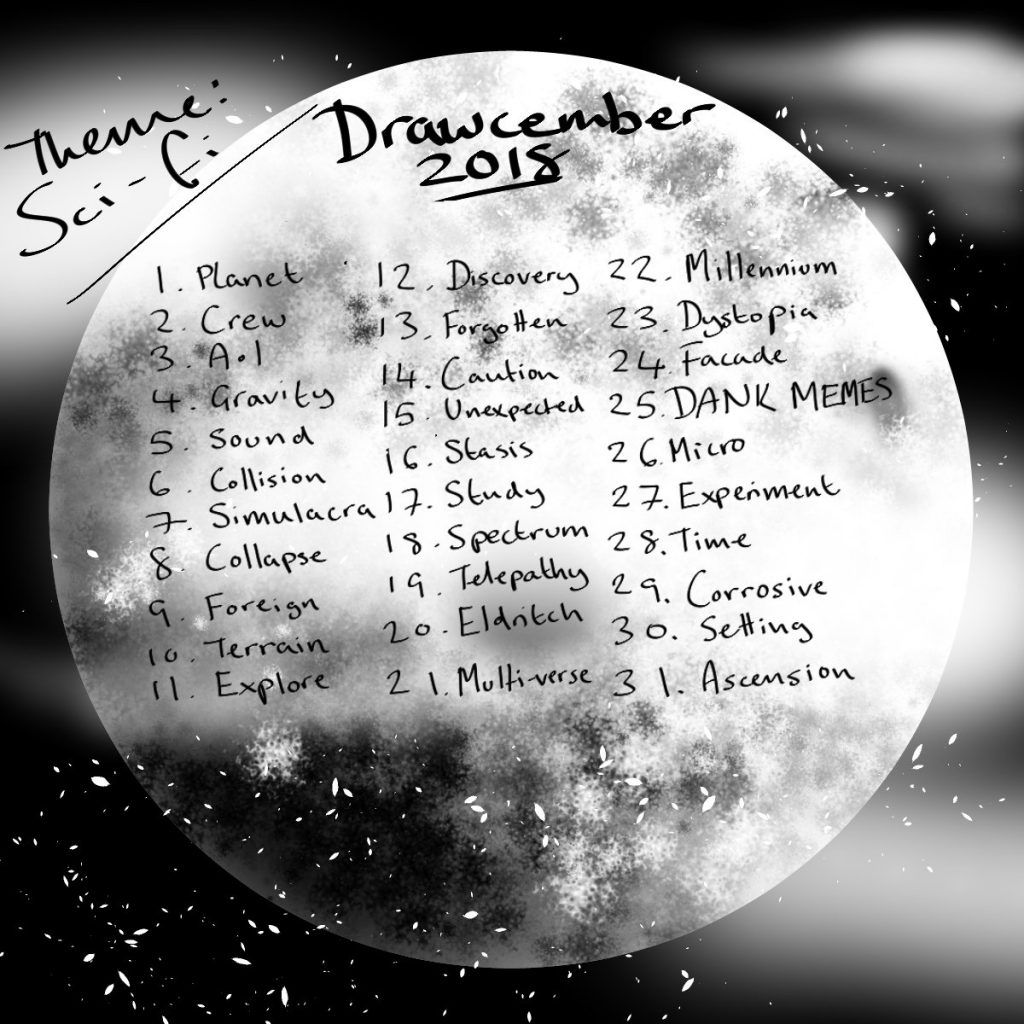 Theme:
Sci-fi
Drawcember
2018
1. Planet
2. Crew
3. A.I
4. Gravity
5. Sound
6. Collision
7. Simulacra
8. Collapse
9. Foreign
10. Terrain
11. Explore
12. Discovery
13. Forgotten
14. Caution
15. Unexpected
16. Stasis
17. Study
18. Spectrum
19. Telepathy
20. Eldritch
21. Multi-verse
22. Millennium
23. Dystopia
24. Facade
25. DANK MEMES
26. Micro
27. Experiment
28. Time
29. Corrosive
30. Setting
31. Ascension